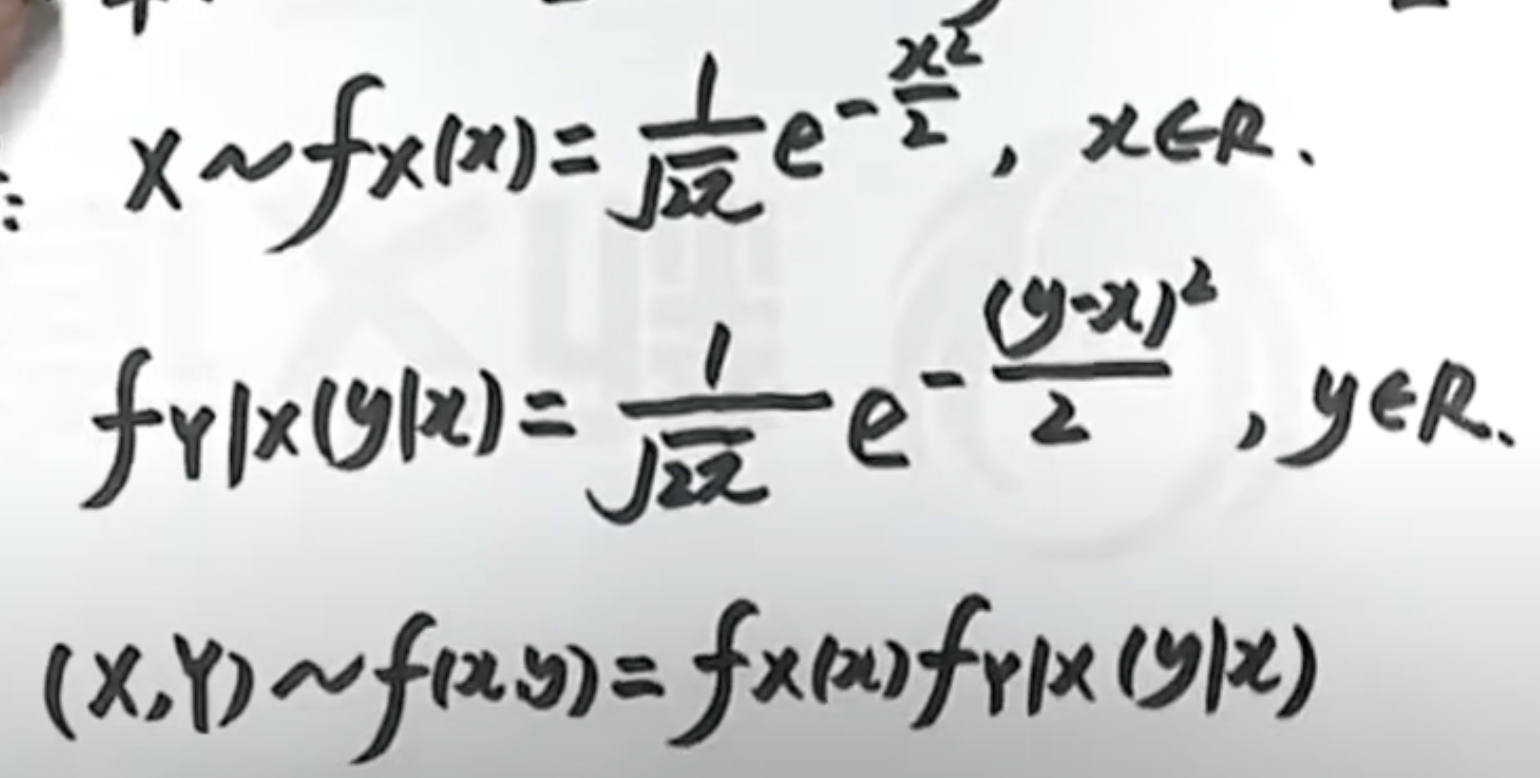 X~fX(x)=1/√2π e^-x²/2, x∈R.
fY|X(y|x)=1/√2π e^-(y-x)²/2, y∈R.
(X,Y)~f(x,y)=fX(x)fY|X(y|x)